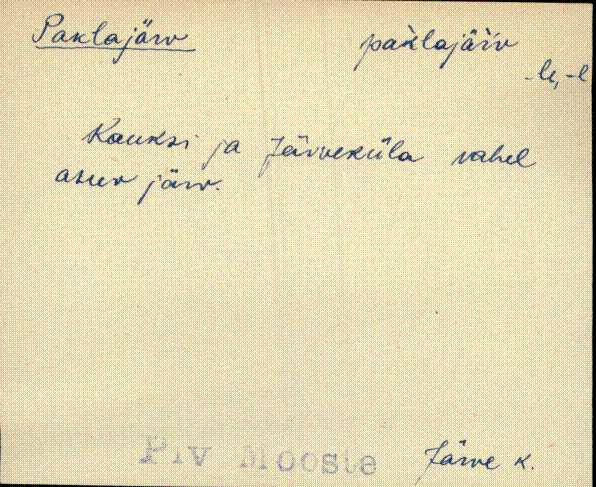 Paklajärv
pàklajä̀rv
-le, -l
Kauksi ja Järveküla vahel
asuv järv.
Plv Mooste
Järve k.